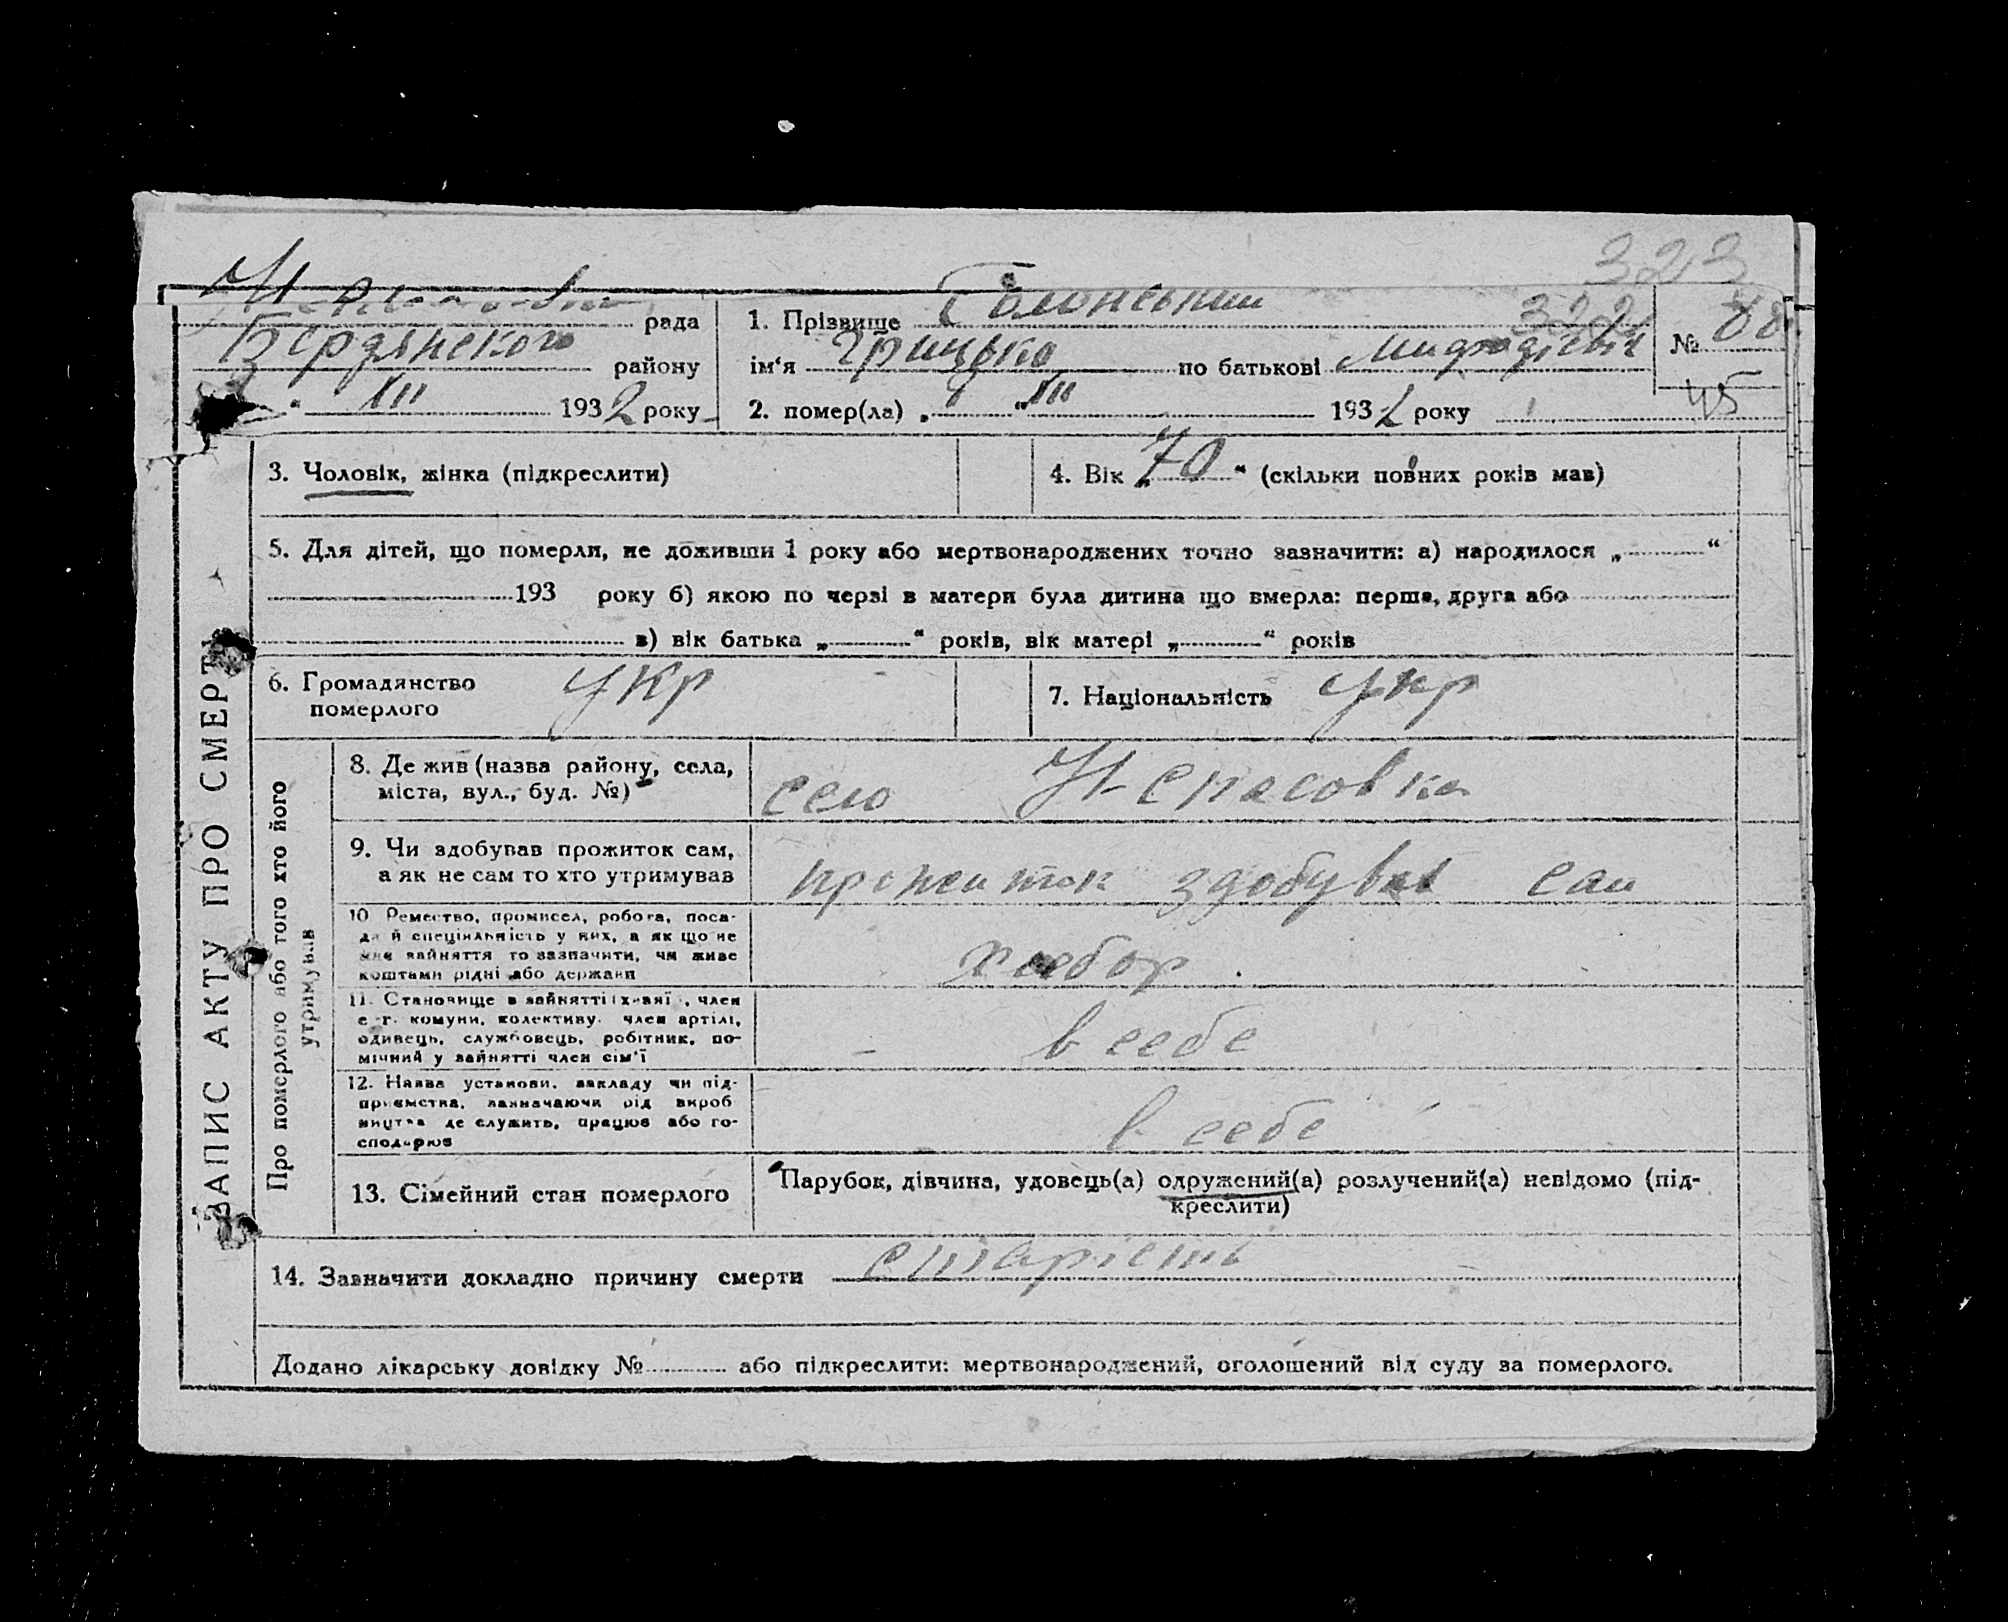 323
Н-Спасовка рада
1. Прізвище
322
№ 88
Бердянского району
ім'я Грицько по батькові
" XII 1932 року
2. помер(ла) „ " XII 1932 року
45
ЗАПИС АКТУ ПРО СМЕРТЬ
3. Чоловік, жінка (підкреслити)
4. Вік „70" (скільки повних років мав)
5. Для дітей, що померли, не доживши 1 року або мертвонароджених точно зазначити: а) народилося „ "
193 року б) якою по черзі в матери була дитина що вмерла: перша, друга або
в) вік батька „ " років, вік матері „ " років
6. Громадянство
померлого
укр
7. Національність укр
Про померлого або того хто його
утримував
8. Де жив (назва району, села,
міста, вул., буд. №)
село Н-Спасовка
9. Чи здобував прожиток сам,
а як не сам то хто утримував
прожиток здобував сам
10. Ремество, промисел, робота, поса-
да й спеціяльність у них, а як що не
мав зайняття то зазначити, чи живе
коштами рідні або держави
хлебор.
11. Становище в зайнятті (хазяї, член
с.-г. комуни, колективу, член артілі,
одивець, службовець, робітник, по-
мічний у зайнятті член сім'ї
в себе
12. Назва установи, закладу чи під-
приємства, зазначаючи рід вироб
ництва де служить, працює або го-
сподарює
в себе
13. Сімейний стан померлого
Парубок, дівчина, удовець(а) одружений(а) розлучений(а) невідомо (під-
креслити)
14. Зазначити докладно причину смерти старість
Додано лікарську довідку № або підкреслити: мертвонароджений, оголошений від суду за померлого.